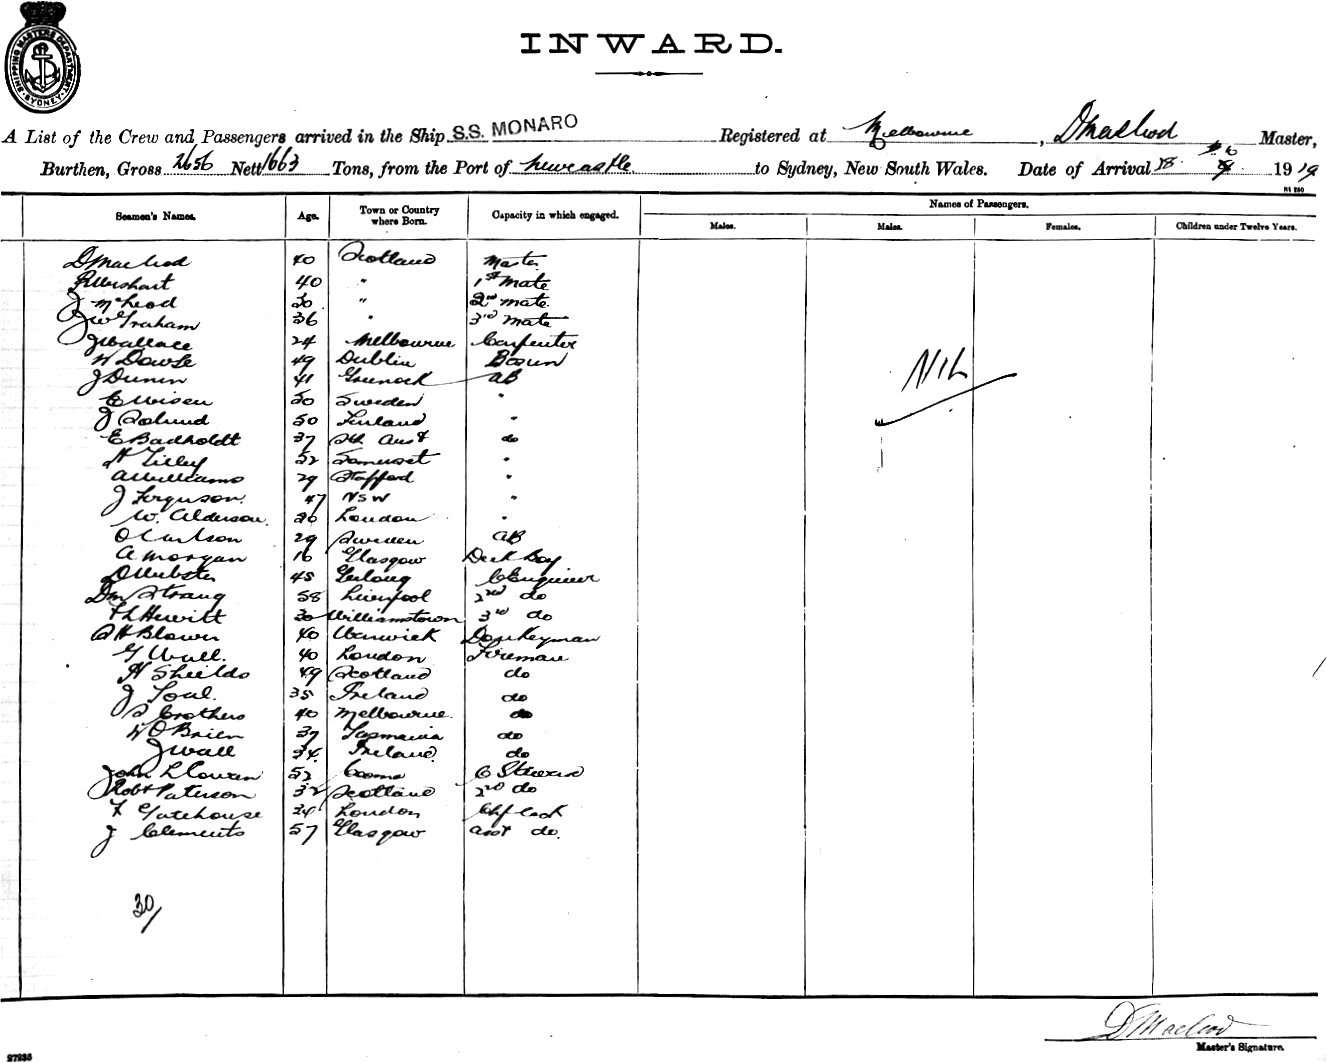 SHIPPING MASTERS DEPARTMENT SYDNEY
INWARD.
A List of the Crew and Passengers arrived in the Ship S.S. MONARO Registered at Melbourne, D Macleod Master,
Burthen, Gross 2656 Nett 1663 Tons, from the Port of Newcastle to Sydney, New South Wales. Date of Arrival 18 6 1919
Seamen's Names. Age. Town or Country where Born. Capacity in which engaged. Names of Passengers.
Males. Males. Females. Children under Twelve Years.
D Macleod 40 Scotland Master
R Wishart 40 " 1st Mate
J McLeod 30 " 2nd mate.
J W Graham 36 " 3rd mate
J Wallace 24 Melbourne Carpenter
W Dowse 49 Dublin Bosun
J Dunn 41 Greenock AB
Nil
30 Sweden "
J 50 Finland "
E Badholdt 37 Sth Aust do
H Tilley 52 Somerset "
A Williams 29 Stafford "
J Ferguson. 47 NSW "
W. Alderson. London "
O Carlson 29 Sweden AB
A Morgan 16 Glasgow Deck Boy
D Webster 45 Geelong C Engineer
Dm Strang 58 Liverpool 2nd do
F L Hewitt 30 Williamstown 3rd do
H Blower 40 Warwick Donkeyman
G Wall. 40 London Fireman
H Shields 49 Scotland do
J Toal. 35 Ireland do
Crothers 40 Melbourne. do
W O'Brien 37 Tasmania do
J Wall 34 Ireland do
John L Cowen 52 Cooma C Steward
Robt Paterson 32 Scotland 2nd do
F Gatehouse London Chf Cook
J Clements 57 Glasgow asst do.
30/
D Macleod
Master's Signature.
27235